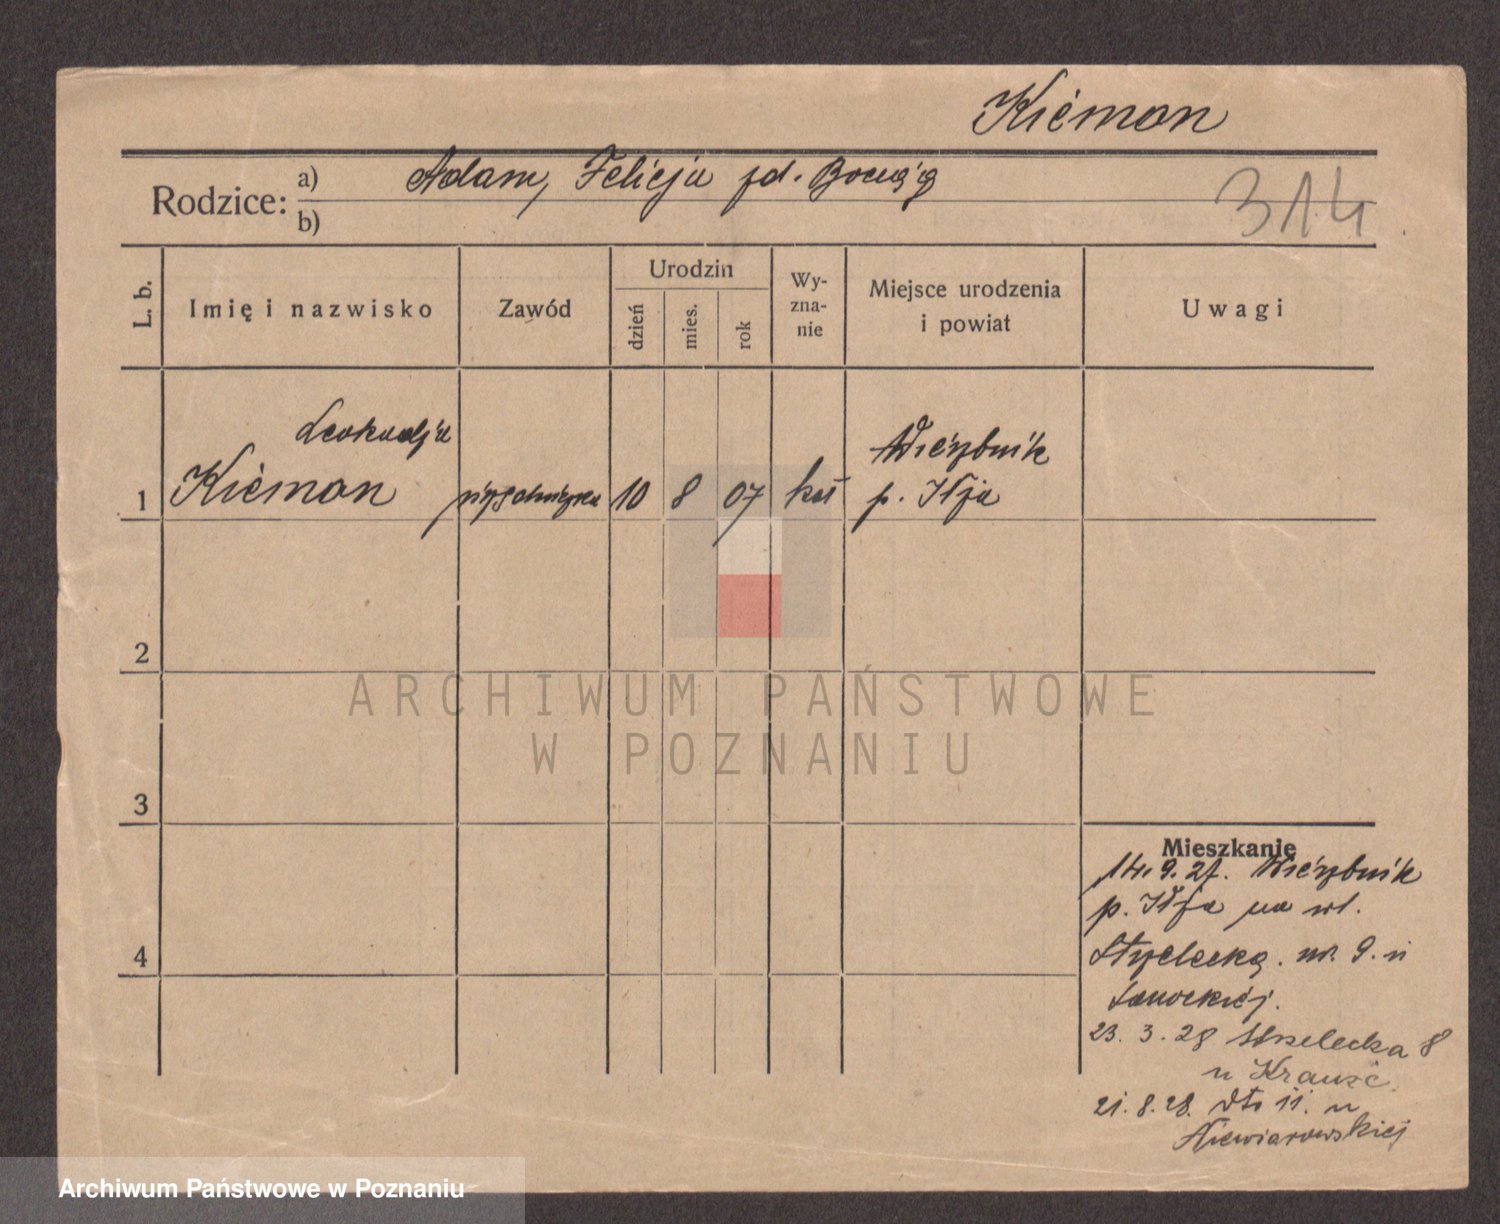 Kiemon
Rodzice: a) Adam, Felicja
b)
314
L. b.
Imię i nazwisko
Zawód
Urodzin
dzień
mies.
rok
Wy-
zna-
nie
Miejsce urodzenia
i powiat
Uwagi
Leokadja
1 Kiemon 10 8 07 kat
Wierzbnik
p. Iłża
2
3
4
ARCHIWUM PAŃSTWOWE
W POZNANIU
Mieszkanie
14. 9. 27. Wierzbnik
p. Iłża na ul.
Strzelecką. nr. 9. u
23. 3. 28 Strzelecka 8
u Krauze.
21. 8. 28. dto 11. u
Niewiarowskiej
Archiwum Państwowe w Poznaniu